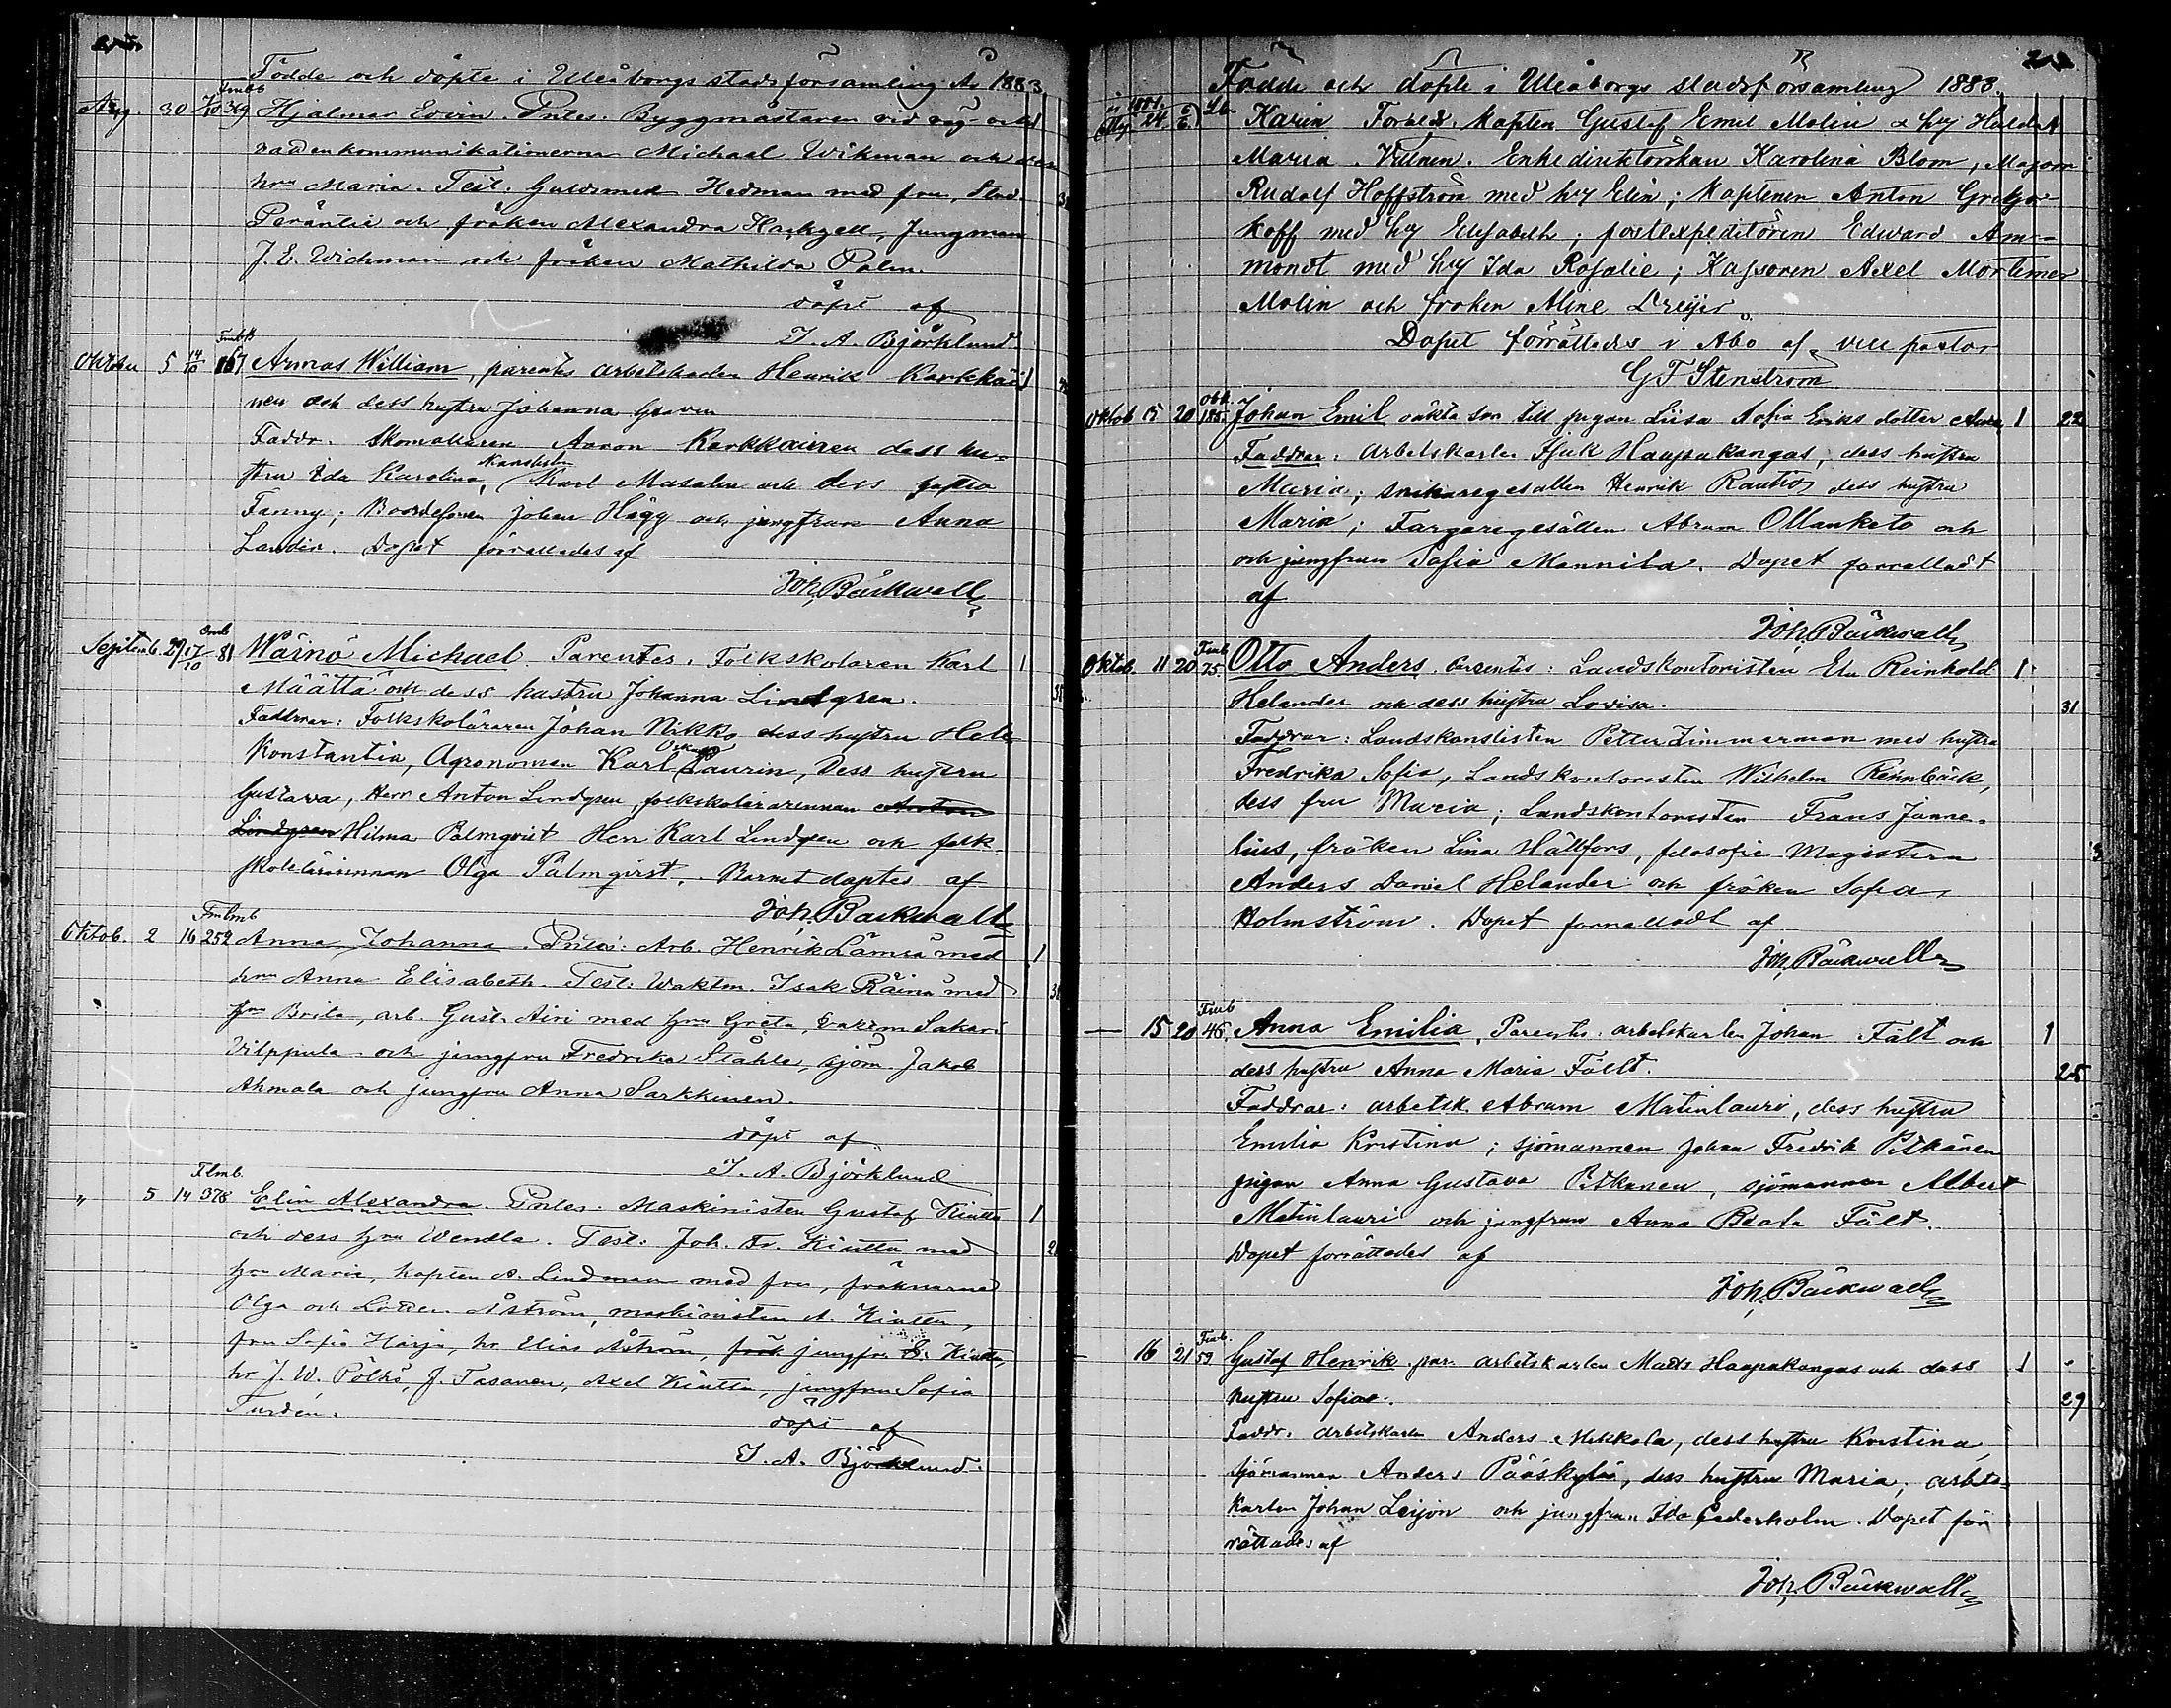 Födde och döpte i Uleåborgs stads församling År 1883
Fmbb
Aug. 30 7/10 369 Hjalmar Edvin. Pntes. Byggmästaren vid väg- och
vattenkommunikationerna Michael Wikman och
hru Maria. Test. Guldsmed Hedman med fru, Stud.
Peräntie och fröken Alexandra Hackzell, Jungman
J. E. Wichman och fröken Mathilda Palm.
döpt af
J. A. Björklund
Oktober 5 14/10 167 Armas William, parentes arbetskarlen Henrik Karkkäi 1
nen och dess hustru Johanna
Faddr. Skomakaren Aaron Karkkainen dess hu-
stru Ida Karolina, Karl Masalin och dess hustru
Fanny; Johan Hägg och jungfrun Anna
Landin. Dopet förrättades af
Joh. Bäckwall
Septemb. 29 17/10 81 Wäinö Michael. Parentes. Folkskolaren Karl 1
Määttä och dess hustru Johanna Lindgren.
Faddrar: Folkskoläraren Johan Nikko dess hustru Hele
Konstantia, Agronomen Karl Oskar Laurin, Dess hustru
Gustava, Herr Anton Lindgren, folkskolärarennan Anton
Lindgren Hilma Palmqvist Herr Karl Lindgren och folk-
skolelärarinnan Olga Palmqvist. Barnet döptes af
Joh. Bäckwall
Oktob. 2 16 252 Anna Johanna. Pntes: Arb. Henrik Lämsä med 1
hru Anna Elisabeth. Test: Waktm. Isak Räinä med
hru Brita, arb. Gust. Airi med hru Greta, Sakari
Vilppula och jungfru Fredrika Ståhle, sjöm. Jakob
Ahmala och jungfru Anna Sarkkinen.
döpt af
J. A. Björklund
Flmb.
" 5 14 378 Elin Alexandra. Pntes. Maskinisten Gustaf Kiutta 1
och dess hru Wendla. Test: Joh. Fr. Kiutta med
hru Maria, kapten A. Lindman med fru, fröknarna
Olga och Åström, maskinisten A. Kiutta,
fru Sofia Harju, hr Elias Åström, jungfru E. Kiutta,
hr J. W. Pölhö, J. Tasanen, Axel Kiutta, jungfrun Sofia
Turdén.
döpt af
J. A. Björklund.
Födde och döpte i Uleåborgs stadsförsamling 1883.
Karin Föräldr. Kapten Gustaf Emil Molin & hu Hulda
Maria. Vittnen. Enkedirektörskan Karolina Blom, Majoren
Rudolf Hoffström med hu Elin; Kaptenen Anton Gregor-
koff med hu Elisabeth; postexpeditören Edward Am-
mondt med hu Ida Rosalie; Kassoren Axel Mortimer
Molin och fröken Aline Dreijer.
Dopet förrättades i Åbo af vice pastor
G F Stenström
Oktob 15 20 185. Johan Emil oäkta son till pigan Liisa Sofia Eriks dotter 1 22
Faddrar: Arbetskarlen Isak Haapakangas, dess hustru
Maria; Snickaregesällen Henrik Rautio dess hustru
Maria; Färgaregesällen Abram Ollanketo och
och jungfrun Sofia Mannila. Dopet förrättadt
af
Joh. Bäckwall
Oktob. 11 20 75. Otto Anders. Parentes: Landskontoristen Elu Reinhold 1
Helander och dess hustru Lovisa. 31
Faddrar: Landskanslisten Petter Zimmerman med hustru
Fredrika Sofia, Landskontoristen Wilhelm Rennbäck,
dess fru Maria; Landskontoristen Frans Janne-
lius, fröken Lina Hällfors, filosofie Magistern
Anders Daniel Helander och fröken Sofia
Holmström. Dopet förrättadt af
Joh. Bäckwall
Fmb
— 15 20 46. Anna Emilia, Parentes: arbetskarlen Johan Fält och 1
dess hustru Anna Maria Fält. 25
Faddrar: arbetsk. Abram Matinlauri, dess hustru
Emilia Kristina; sjömannen Johan Fredrik Pitkänen
pigan Anna Gustava Pitkänen, sjömannen Albert
Matinlauri och jungfrun Anna Beata Fält.
Dopet förrättades af
Joh. Bäckwall
Fmb.
16 21 59 Gustaf Henrik par. arbetskarlen Matts Haapakangas och dess 1
hustru Sofia. 29
Faddr. arbetskarlen Anders Mekkala, dess hustru Kristina,
sjömannen Anders Pääskylä, dess hustru Maria, arbets-
karlen Johan Leijon och jungfrun Ida Cederholm. Dopet för
rättades af
Joh. Bäckwall